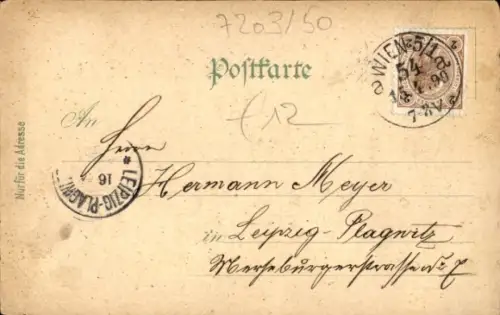 7203/50
Postkarte
WIEN 5/1
54
7-8V
£12
An
Herrn
Nur für die Adresse
LEIPZIG-PLAGWITZ
16
Hermann Meyer
in Leipzig-Plagwitz
Merseburgerstrasse No 7